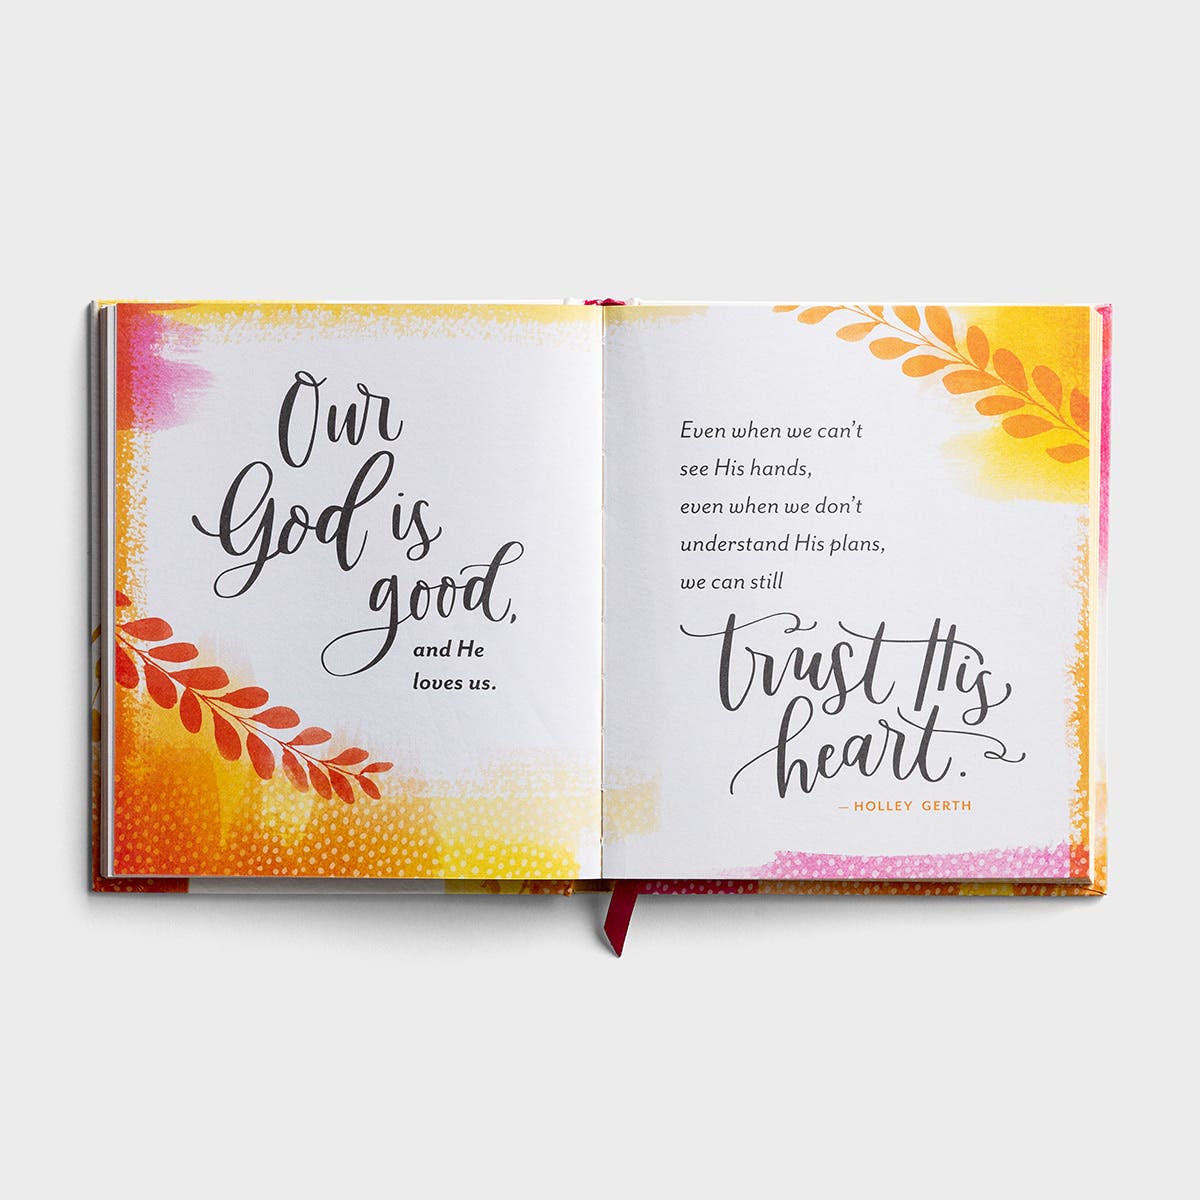 Our
God is
good,
and He
loves us.
Even when we can't
see His hands,
even when we don't
understand His plans,
we can still
trust His
heart.
— HOLLEY GERTH